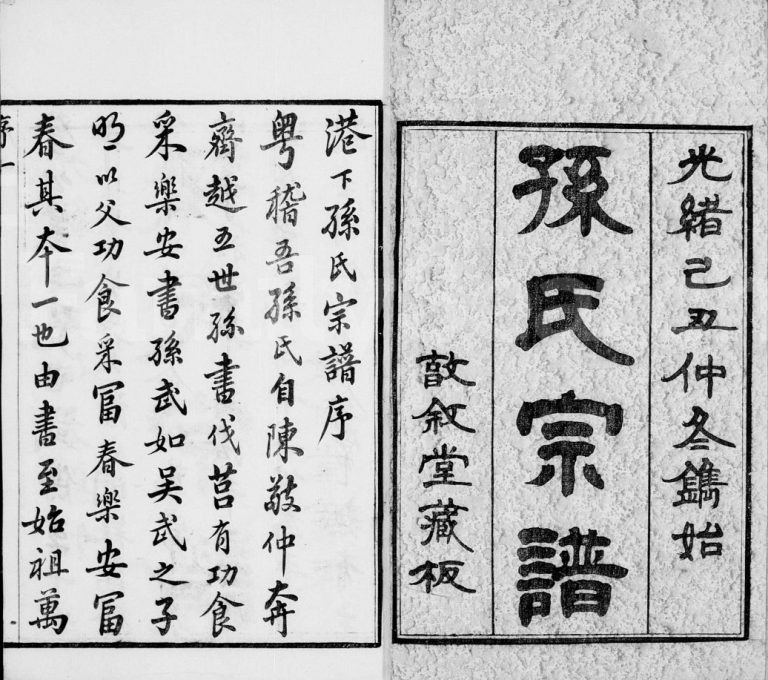 光緒己丑仲冬鐫始
孫氏宗譜
敦敘堂藏板
港下孫氏宗譜序
粵稽吾孫氏自陳敬仲奔
齊越五世孫書伐莒有功食
采樂安書孫武如吴武之子
明以父功食采冨春樂安冨
春其本一也由書至始祖萬
序一